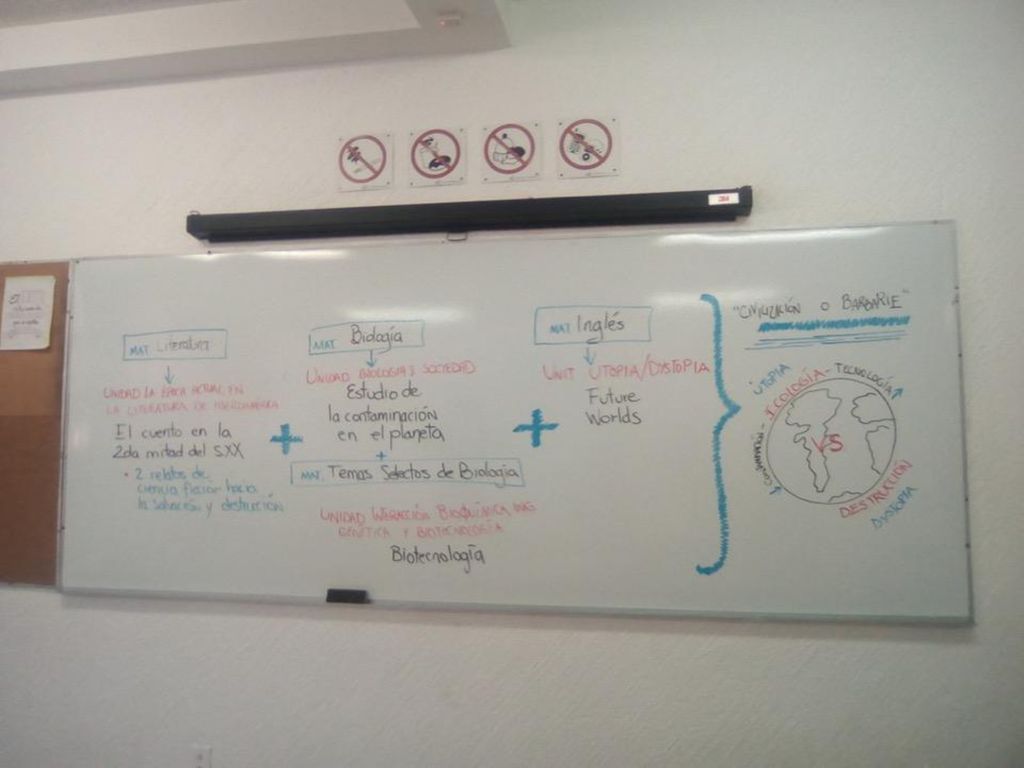 MAT. Literatura
UNIDAD LA ÉPOCA ACTUAL EN
LA LITERATURA DE IBEROAMERICA
El cuento en la
2da mitad del S.XX
• 2 relatos de
ciencia ficción hacia
la salvación y destrucción
+
MAT. Biología
UNIDAD BIOLOGIA Y SOCIEDAD
Estudio de
la contaminación
en el planeta
+
MAT. Temas Selectos de Biología
UNIDAD INTERACCIÓN BIOQUÍMICA, ING.
GENÉTICA Y BIOTECNOLOGÍA
Biotecnología
+
MAT. Inglés
UNIT UTOPIA/DYSTOPIA
Future
Worlds
"CIVILIZACIÓN O BARBARIE"
ÚTOPIA
ECOLOGÍA - TECNOLOGÍA
VS
DESTRUCCIÓN
DYSTOPIA
3M